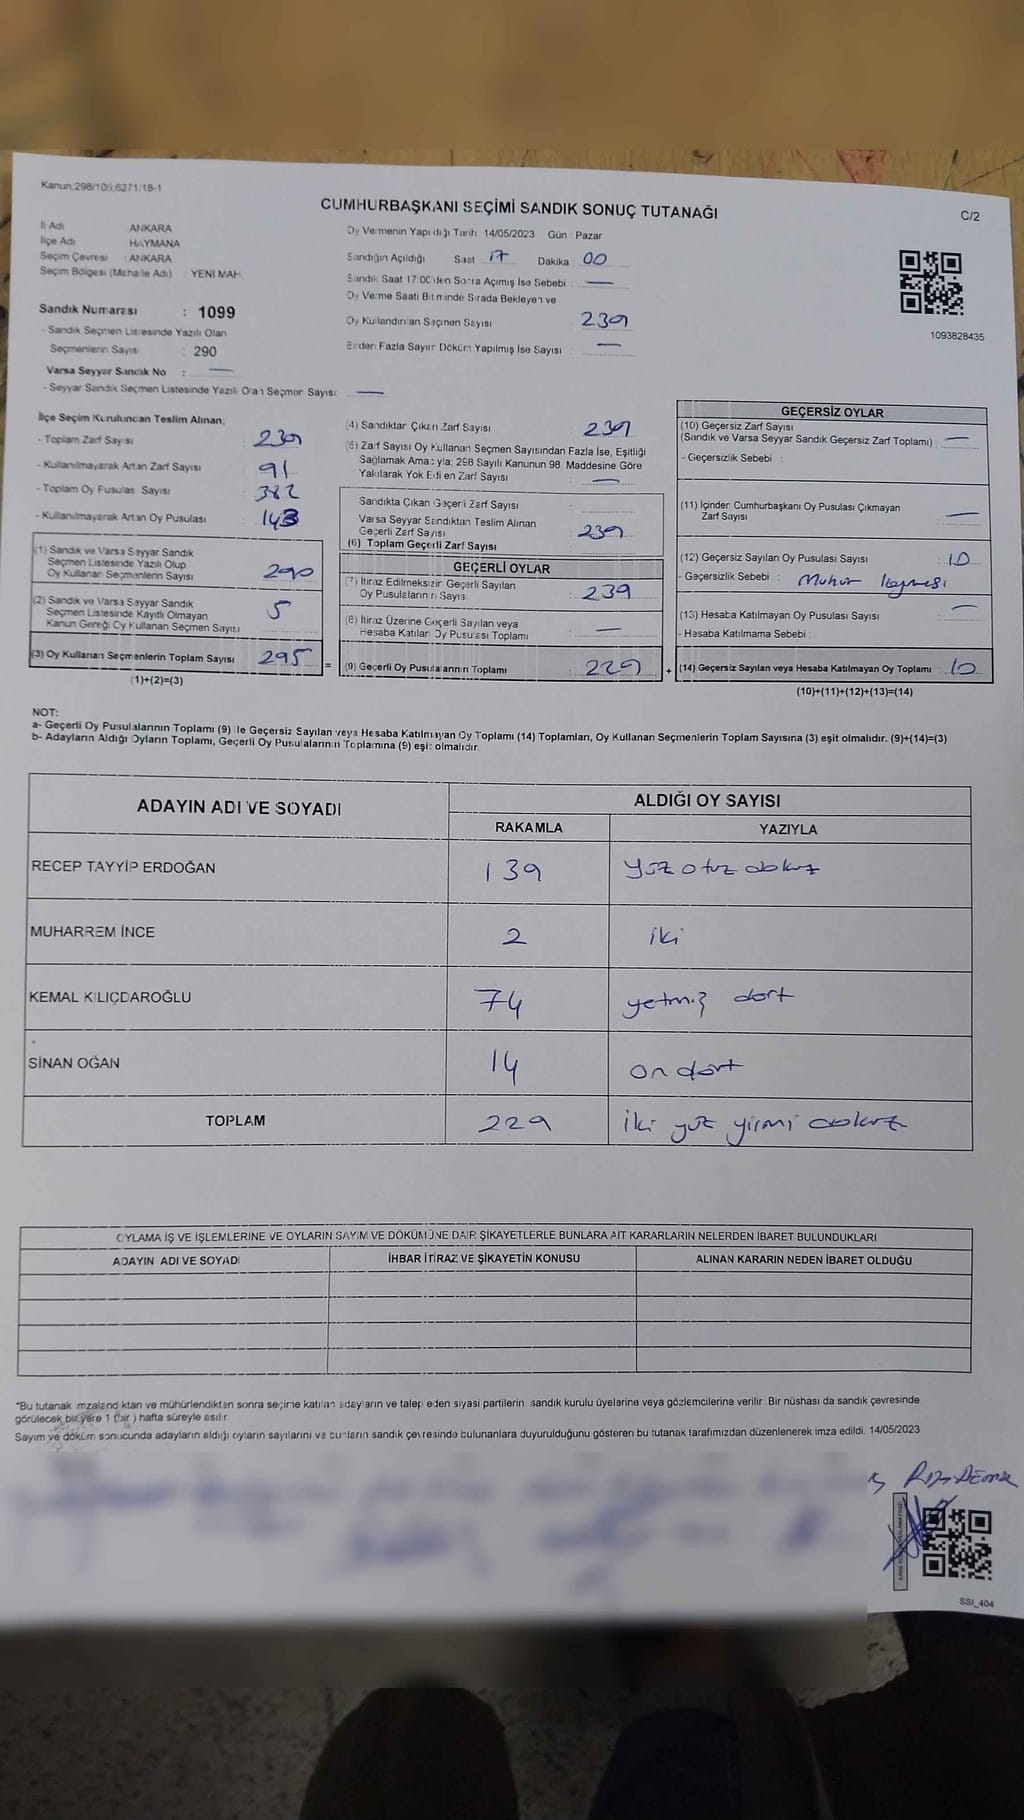 Kanun,298/105,6271/18-1
CUMHURBAŞKANI SEÇİMİ SANDIK SONUÇ TUTANAĞI
C/2
İl Adı ANKARA
İlçe Adı HAYMANA
Seçim Çevresi : ANKARA
Seçim Bölgesi (Mahalle Adı) : YENI MAH
Sandık Numarası : 1099
- Sandık Seçmen Listesinde Yazılı Olan
Seçmenlerin Sayısı : 290
Varsa Seyyar Sandık No : —
- Seyyar Sandık Seçmen Listesinde Yazılı Olan Seçmen Sayısı —
Oy Vermenin Yapıldığı Tarih 14/05/2023 Gün : Pazar
Sandığın Açıldığı Saat : 17 Dakika : 00
Sandık Saat 17:00'den Sonra Açımış İse Sebebi : —
Oy Verme Saati Bitiminde Sırada Bekleyen ve
Oy Kullandırılan Seçmen Sayısı 239
Birden Fazla Sayım Döküm Yapılmış İse Sayısı : —
1093828435
İlçe Seçim Kurulundan Teslim Alınan;
- Toplam Zarf Sayısı 239
- Kullanılmayarak Artan Zarf Sayısı 91
- Toplam Oy Pusulası Sayısı 382
- Kullanılmayarak Artan Oy Pusulası 143
(1) Sandık ve Varsa Seyyar Sandık
Seçmen Listesinde Yazılı Olup
Oy Kullanan Seçmenlerin Sayısı 290
(2) Sandık ve Varsa Seyyar Sandık
Seçmen Listesinde Kayıtlı Olmayan
Kanun Gereği Oy Kullanan Seçmen Sayısı 5
(3) Oy Kullanan Seçmenlerin Toplam Sayısı 295 =
(1)+(2)=(3)
(4) Sandıktan Çıkan Zarf Sayısı 239
(5) Zarf Sayısı Oy Kullanan Seçmen Sayısından Fazla İse, Eşitliği
Sağlamak Amacıyla; 298 Sayılı Kanunun 98. Maddesine Göre
Yakılarak Yok Edilen Zarf Sayısı : —
Sandıkta Çıkan Geçerli Zarf Sayısı
Varsa Seyyar Sandıktan Teslim Alınan
Geçerli Zarf Sayısı 239
(6) Toplam Geçerli Zarf Sayısı
GEÇERLİ OYLAR
(7) İtiraz Edilmeksizin Geçerli Sayılan
Oy Pusulalarının Sayısı : 239
(8) İtiraz Üzerine Geçerli Sayılan veya
Hesaba Katılan Oy Pusulası Toplamı : —
(9) Geçerli Oy Pusulalarının Toplamı : 229 +
GEÇERSİZ OYLAR
(10) Geçersiz Zarf Sayısı
(Sandık ve Varsa Seyyar Sandık Geçersiz Zarf Toplamı) : —
- Geçersizlik Sebebi :
(11) İçinden Cumhurbaşkanı Oy Pusulası Çıkmayan
Zarf Sayısı —
(12) Geçersiz Sayılan Oy Pusulası Sayısı 10
- Geçersizlik Sebebi : Muhur
(13) Hesaba Katılmayan Oy Pusulası Sayısı : —
- Hesaba Katılmama Sebebi :
(14) Geçersiz Sayılan veya Hesaba Katılmayan Oy Toplamı : 10
(10)+(11)+(12)+(13)=(14)
NOT:
a- Geçerli Oy Pusulalarının Toplamı (9) ile Geçersiz Sayılan veya Hesaba Katılmayan Oy Toplamı (14) Toplamları, Oy Kullanan Seçmenlerin Toplam Sayısına (3) eşit olmalıdır. (9)+(14)=(3)
b- Adayların Aldığı Oyların Toplamı, Geçerli Oy Pusulalarının Toplamına (9) eşit olmalıdır
ADAYIN ADI VE SOYADI ALDIĞI OY SAYISI
RAKAMLA YAZIYLA
RECEP TAYYİP ERDOĞAN 139 yüz otuz dokuz
MUHARREM İNCE 2 iki
KEMAL KILIÇDAROĞLU 74 yetmiş dört
SİNAN OĞAN 14 on dört
TOPLAM 229 iki yüz yirmi dokuz
OYLAMA İŞ VE İŞLEMLERİNE VE OYLARIN SAYIM VE DÖKÜMÜNE DAİR ŞİKAYETLERLE BUNLARA AİT KARARLARIN NELERDEN İBARET BULUNDUKLARI
ADAYIN ADI VE SOYADI İHBAR İTİRAZ VE ŞİKAYETİN KONUSU ALINAN KARARIN NEDEN İBARET OLDUĞU
*Bu tutanak imzalandıktan ve mühürlendikten sonra seçime katılan adayların ve talep eden siyasi partilerin sandık kurulu üyelerine veya gözlemcilerine verilir. Bir nüshası da sandık çevresinde
görülecek bir yere 1 (bir) hafta süreyle asılır.
Sayım ve döküm sonucunda adayların aldığı oyların sayılarını ve bunların sandık çevresinde bulunanlara duyurulduğunu gösteren bu tutanak tarafımızdan düzenlenerek imza edildi. 14/05/2023
SSI_404